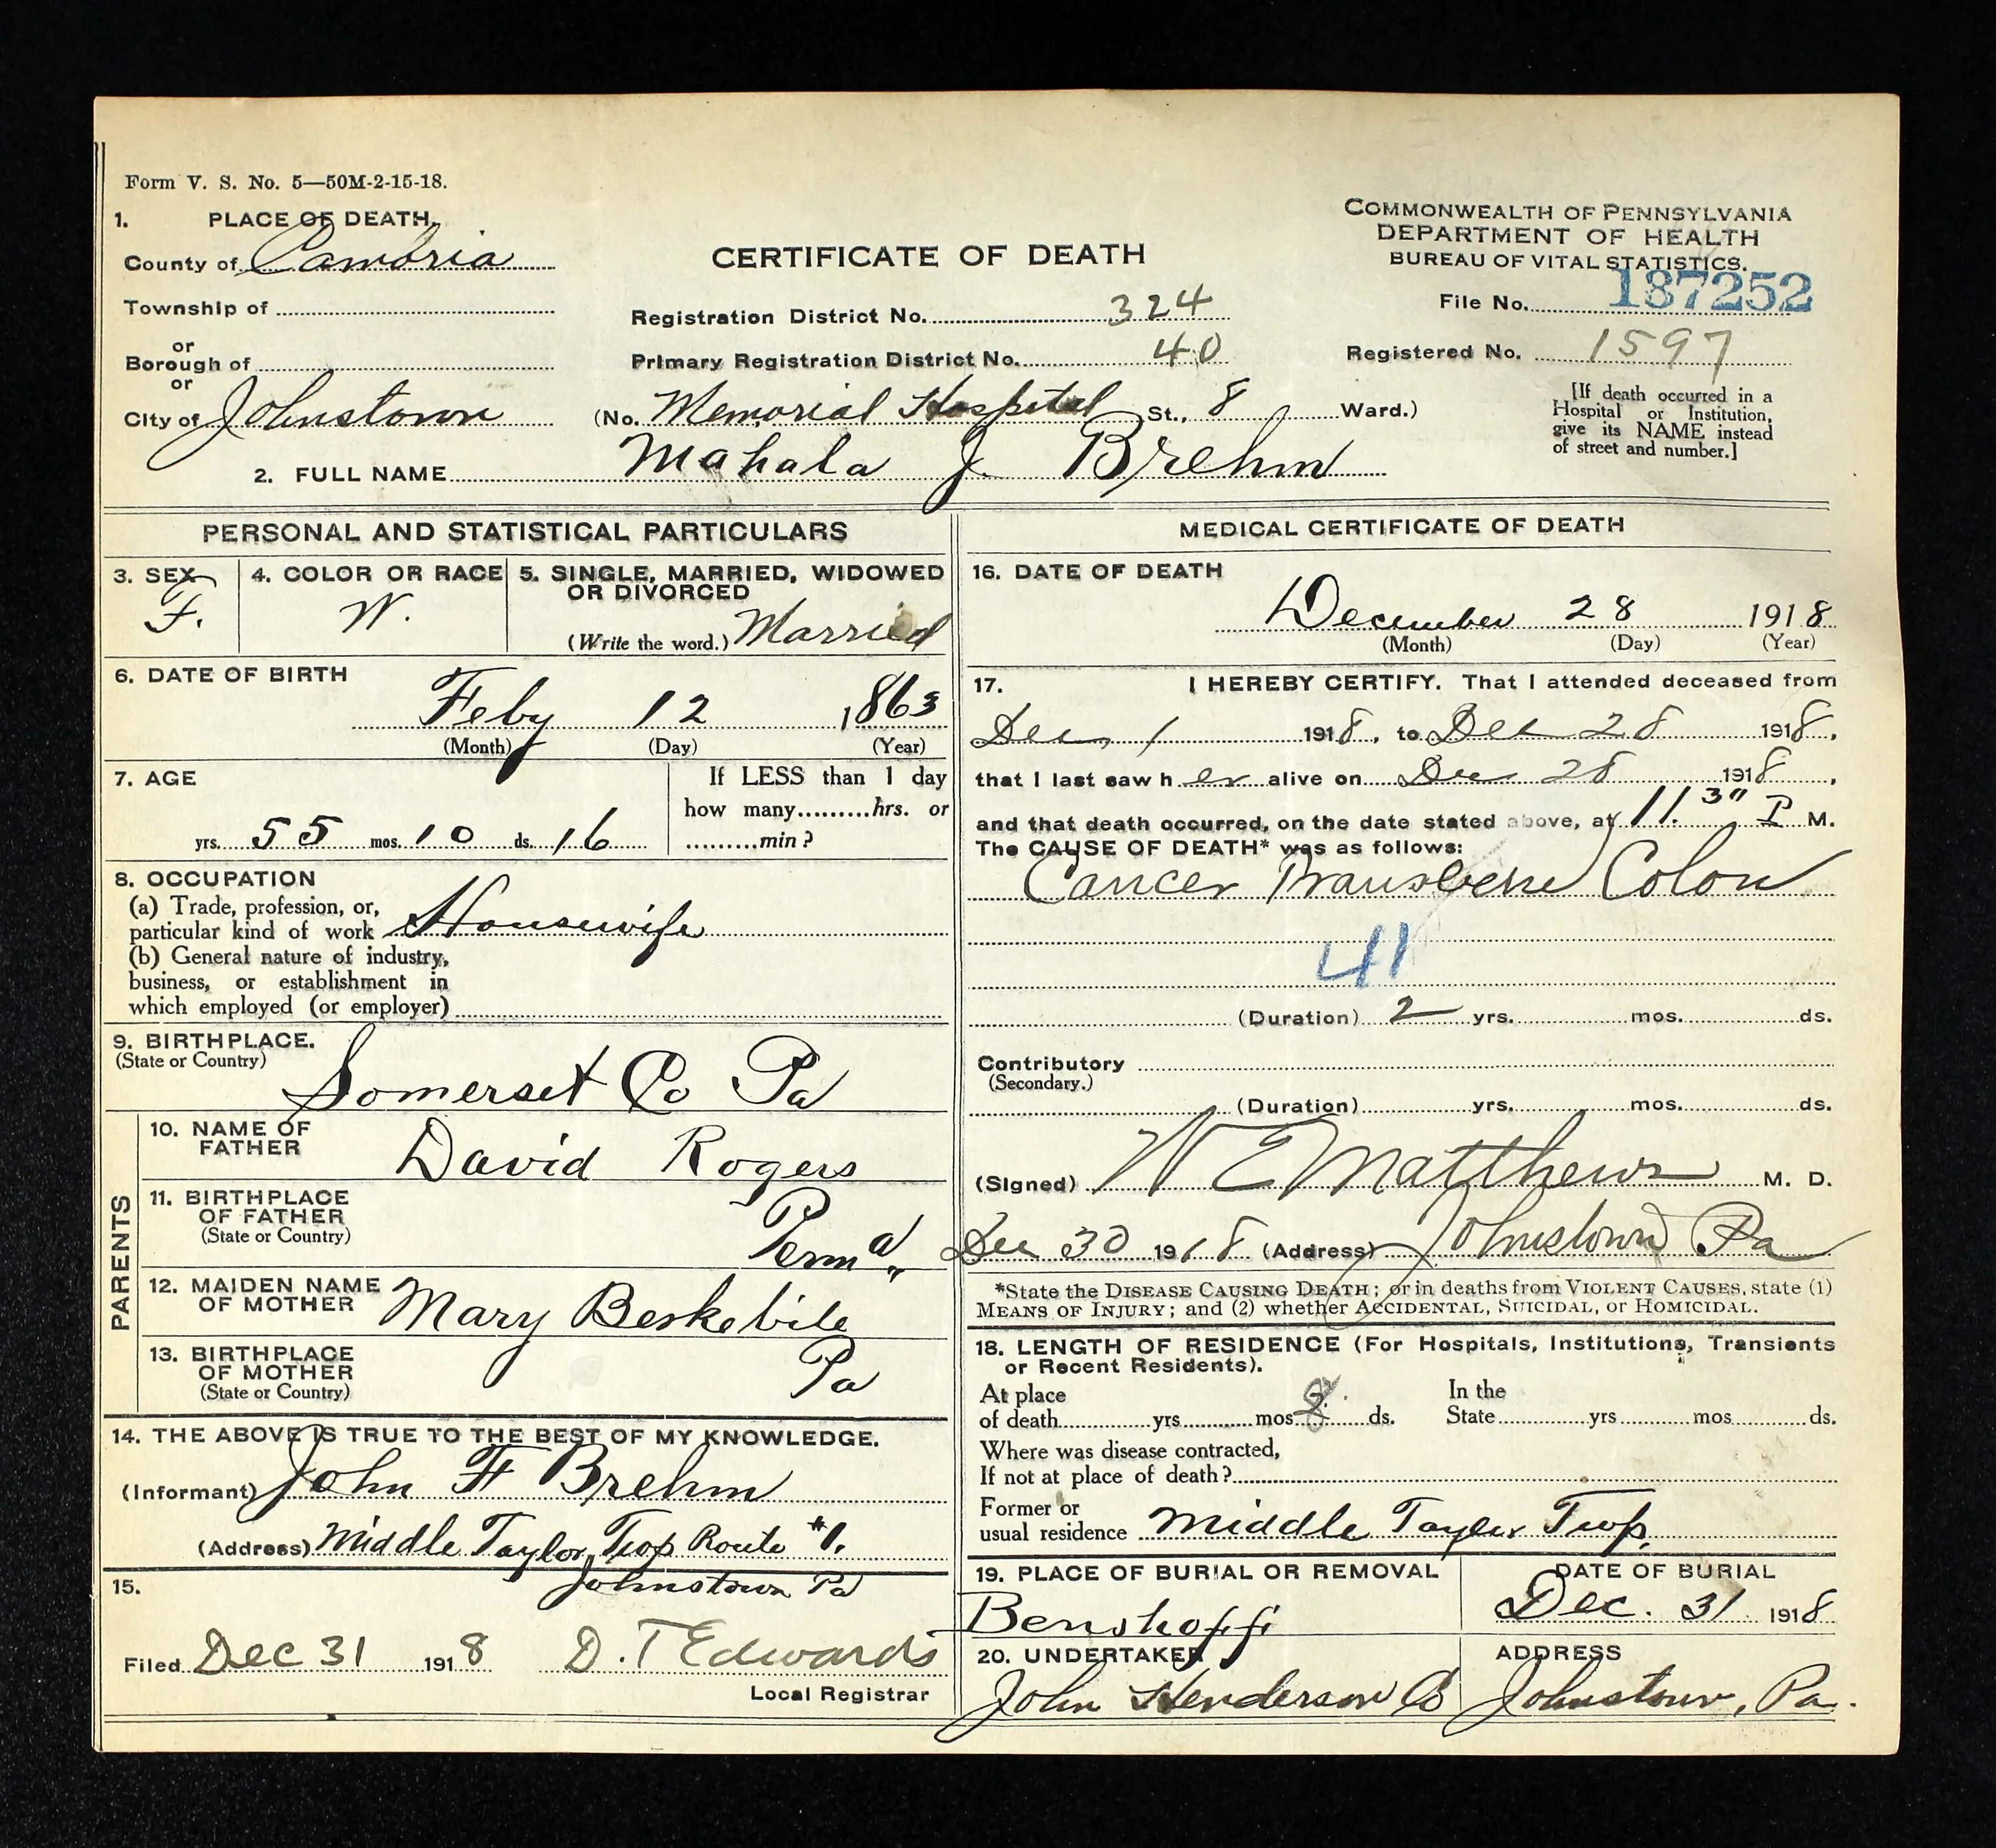 Form V. S. No. 5—50M-2-15-18.
1. PLACE OF DEATH.
County of Cambria
Township of
or
Borough of
or
City of Johnstown
CERTIFICATE OF DEATH
Registration District No. 324
Primary Registration District No. 40
(No. Memorial Hospital St., 8 Ward.)
COMMONWEALTH OF PENNSYLVANIA
DEPARTMENT OF HEALTH
BUREAU OF VITAL STATISTICS.
File No. 187252
Registered No. 1597
[If death occurred in a
Hospital or Institution,
give its NAME instead
of street and number.]
2. FULL NAME Mahala J. Brehm
PERSONAL AND STATISTICAL PARTICULARS
3. SEX
F.
4. COLOR OR RACE
W.
5. SINGLE, MARRIED, WIDOWED
OR DIVORCED
(Write the word.) Married
6. DATE OF BIRTH
Feby 12 1863
(Month) (Day) (Year)
7. AGE
yrs. 55 mos. 10 ds. 16
If LESS than 1 day
how many.........hrs. or
.........min?
8. OCCUPATION
(a) Trade, profession, or,
particular kind of work Housewife
(b) General nature of industry,
business, or establishment in
which employed (or employer)
9. BIRTHPLACE.
(State or Country)
Somerset Co Pa
PARENTS
10. NAME OF
FATHER
David Rogers
11. BIRTHPLACE
OF FATHER
(State or Country)
Penna
12. MAIDEN NAME
OF MOTHER
Mary Beskebile
13. BIRTHPLACE
OF MOTHER
(State or Country)
Pa
14. THE ABOVE IS TRUE TO THE BEST OF MY KNOWLEDGE.
(Informant) John F Brehm
(Address) Middle Taylor Twp Route #1.
Johnstown Pa
15.
Filed Dec 31 1918 D. T Edwards
Local Registrar
MEDICAL CERTIFICATE OF DEATH
16. DATE OF DEATH
December 28 1918
(Month) (Day) (Year)
17. I HEREBY CERTIFY. That I attended deceased from
Dec 1 1918, to Dec 28 1918,
that I last saw her alive on Dec 28 1918,
and that death occurred, on the date stated above, at 11.30 P M.
The CAUSE OF DEATH* was as follows:
Cancer Transverse Colon
41
(Duration) 2 yrs. mos. ds.
Contributory
(Secondary.)
(Duration) yrs. mos. ds.
(Signed) W E Matthews M. D.
Dec 30 1918 (Address) Johnstown Pa
*State the DISEASE CAUSING DEATH; or in deaths from VIOLENT CAUSES, state (1)
MEANS OF INJURY; and (2) whether ACCIDENTAL, SUICIDAL, or HOMICIDAL.
18. LENGTH OF RESIDENCE (For Hospitals, Institutions, Transients
or Recent Residents).
At place
of death yrs mos ds.
In the
State yrs mos ds.
Where was disease contracted,
If not at place of death?
Former or
usual residence Middle Taylor Twp.
19. PLACE OF BURIAL OR REMOVAL
Benshoffs
DATE OF BURIAL
Dec. 31 1918
20. UNDERTAKER
John Henderson Co
ADDRESS
Johnstown, Pa.